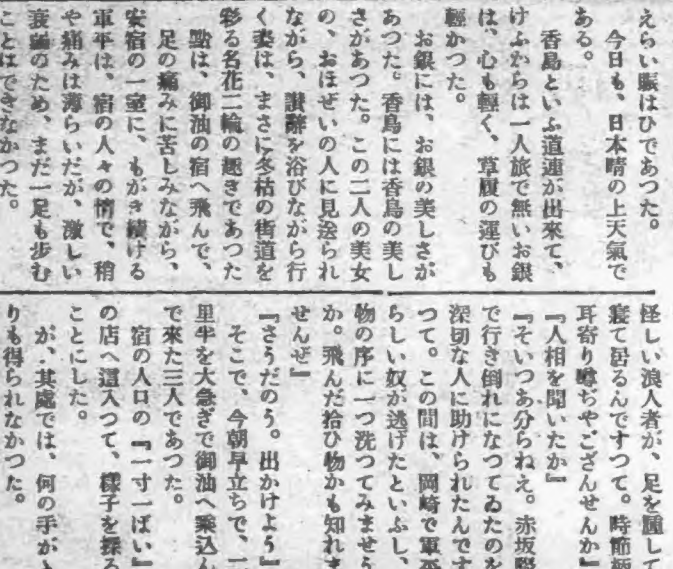 えらい賑はひであつた。
今日も、日本晴の上天氣で
ある。
香島といふ道連が出來て、
けふからは一人旅で無いお銀
は、心も輕く、草履の運びも
輕かつた。
お銀には、お銀の美しさが
あつた。香島には香島の美し
さがあつた。この二人の美女
の、おほぜいの人に見送られ
ながら、讃辭を浴びながら行
く姿は、まさに冬枯の街道を
彩る名花二輪の趣きであつた
點は、御油の宿へ飛んで、
足の痛みに苦しみながら、
安宿の一室に、もがき續ける
軍平は、宿の人々の情で、稍
や痛みは薄らいだが、激しい
衰弱のため、まだ一足も歩む
ことはできなかつた。
怪しい浪人者が、足を腫して
寢て居るんですつて。時節柄
耳寄り噂ちやござんせんか』
『人相を聞いたか』
『そいつあ分らねえ。赤坂
で行き倒れになつてゐたのを
深切な人に助けられたんです
つて。この間は、岡崎で軍平
らしい奴が逃げたといふし、
物の序に一つ洗つてみませう
か。飛んだ拾ひ物かも知れま
せんぜ』
『さうだのう。出かけよう』
そこで、今朝早立ちで、一
里半を大急ぎで御油へ乘込ん
で來た三人であつた。
宿の入口の『一寸一ぱい』
の店へ這入つて、樣子を探る
ことにした。
が、其處では、何の手が
りも得られなかつた。